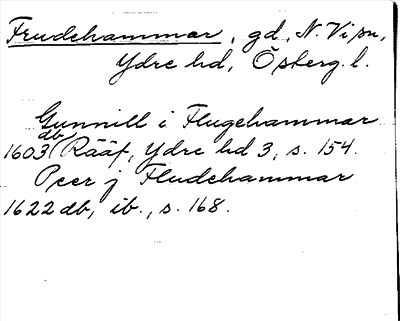 Frudehammar, gd, N. Vi sn,
Ydre hd, Österg. l.
Gunnill i Flugehammar
1603 db (Rääf, Ydre hd 3, s. 154.
Peer j Fludehammar
1622 db, ib., s. 168.